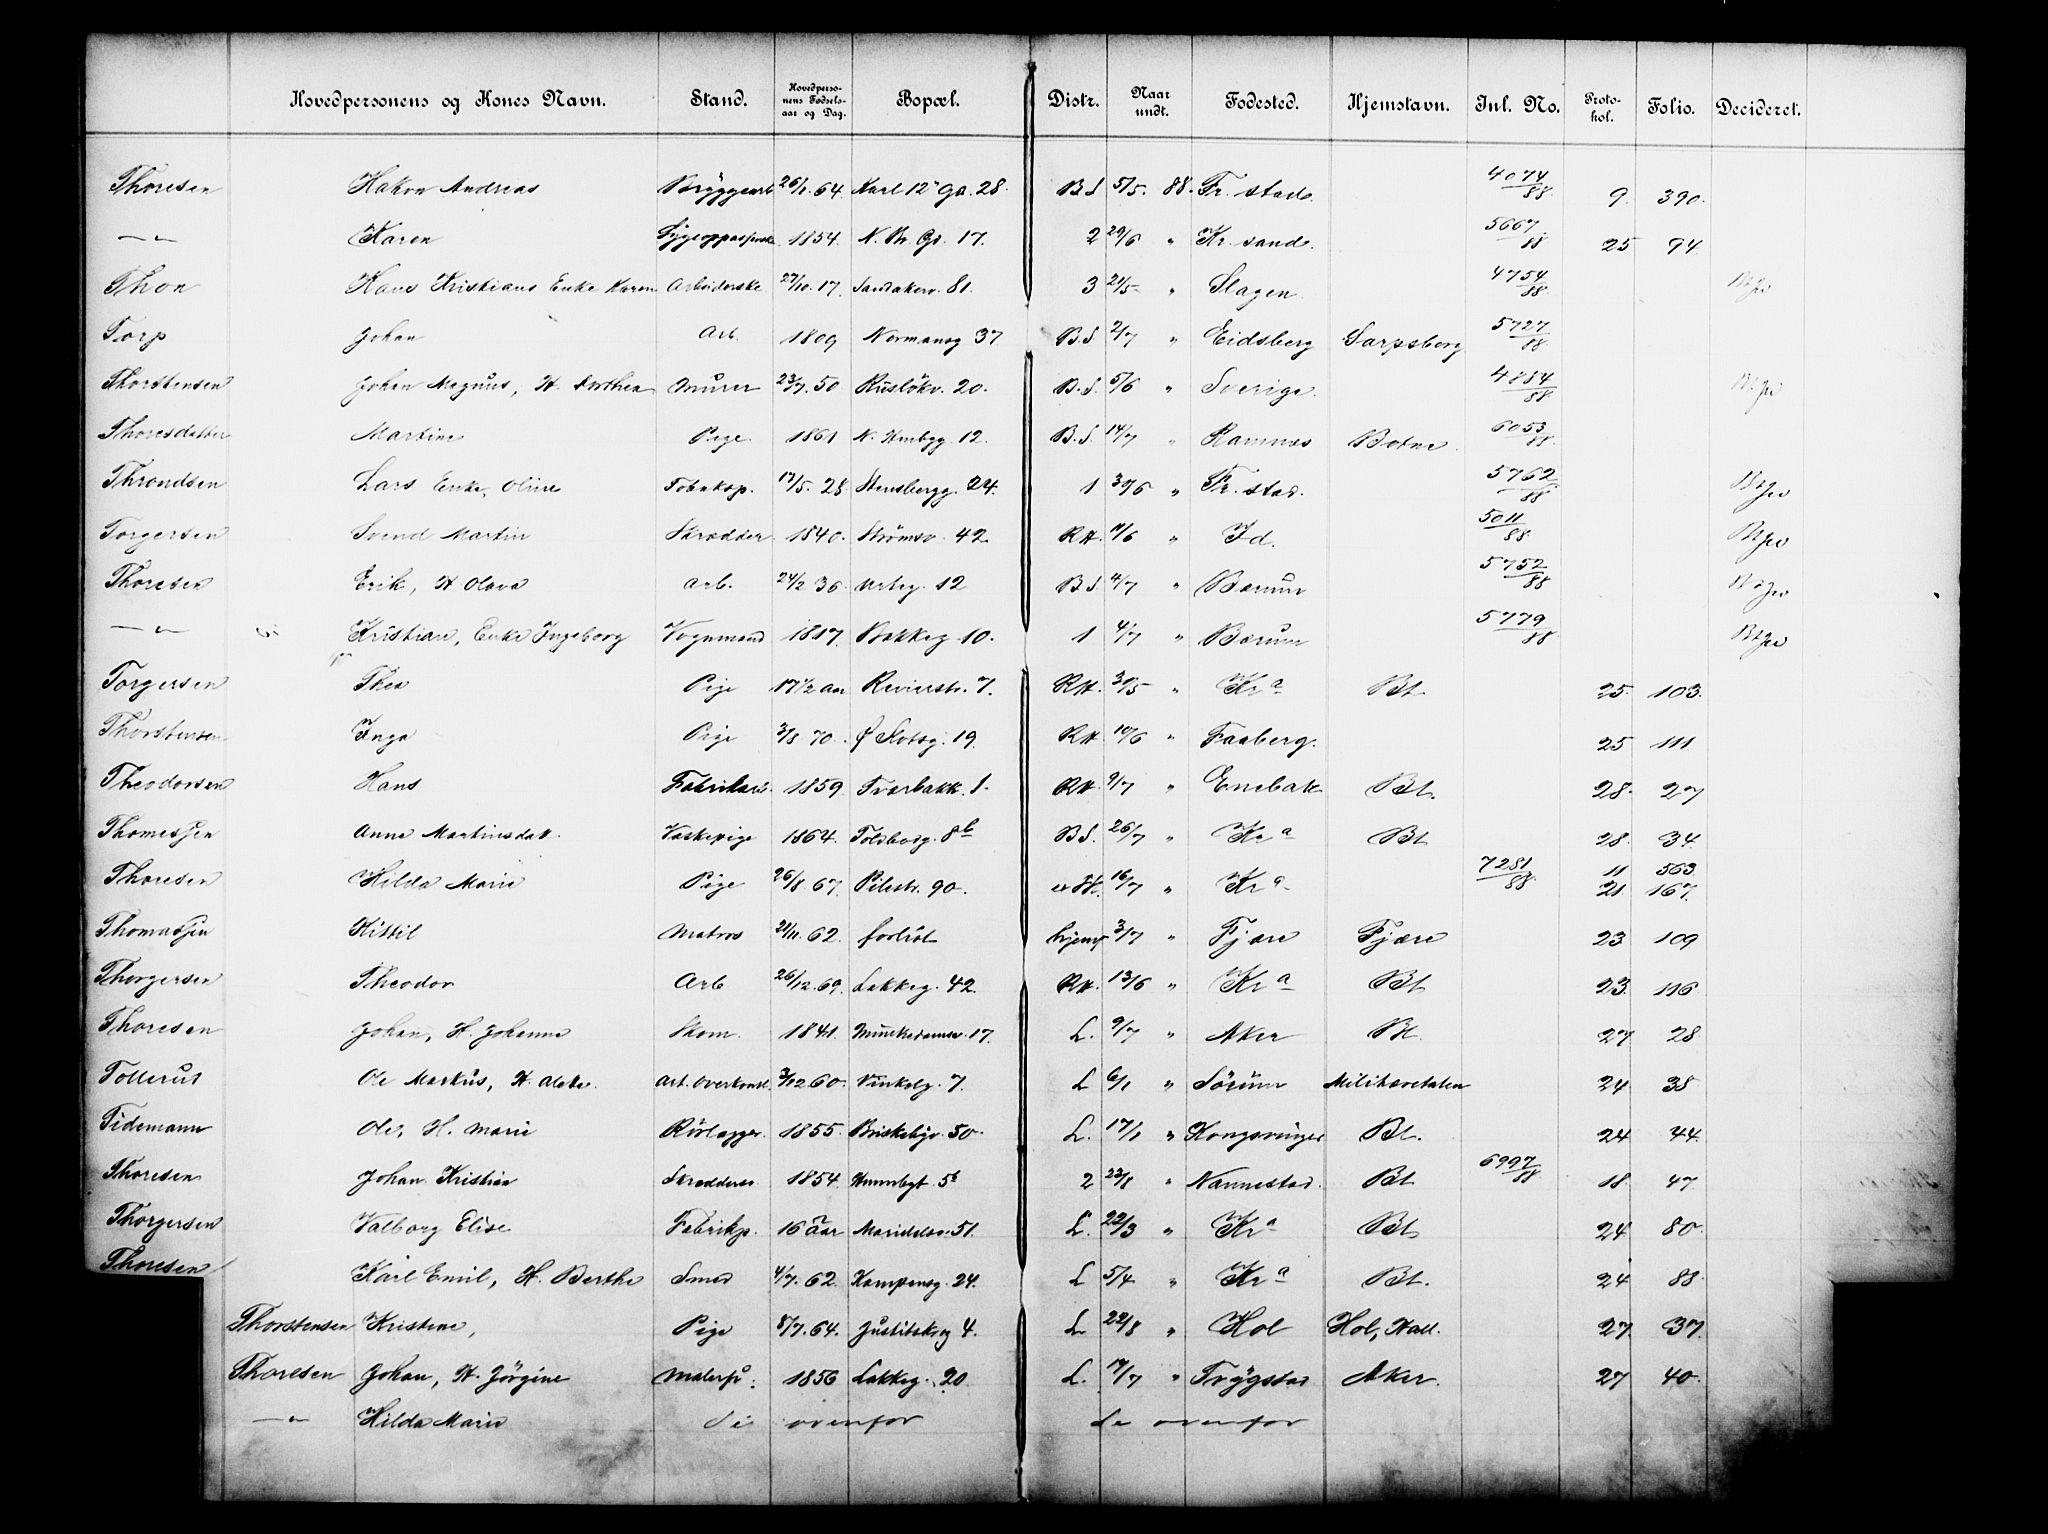 Hovedpersonens og Kones Navn. Stand. Hovedperso-nens Fødsels-aar og Dag. Bopæl. Distr. Naar undt. Fødested. Hjemstavn. Inl. No. Proto-kol. Folio. Decideret.
Thoresen Hakon Andreas Bryggearb 26/1 64. Karl 12 Gd. 28. B.S 5/5. 88. Fr. stad. 4074/88 9. 390.
—"— Karen 1854. N. Gd. 17. 2 29/6 " Kr. sand. 5667/88 25 94.
Thon Hans Kristians Enke Karen Arbeiderske 27/10. 17. Sandakerv. 81. 3 24/5 " Slagen. 4754/88
Torp Johan Arb. 1809 Normansg 37. B.S. 2/7 " Eidsberg Sarpsborg 5727/88
Thorstensen Johan Magnus, H. Dorthea Murer 23/7. 50 Rusløkv. 20. B.S. 5/6 " Sverige. 4884/88
Thoresdatter Martine Pige. 1861 12. B.S. 14/7 " Ramnes Botne. 6053/88
Throndsen Lars Enke, Oline Tobaksp. 17/5. 28. Stensbergg. 24. 1 30/6 " Fr. stad. 5762/88
Torgersen Svend Martin Skrædder 1840. Strømsv. 42. RH. 11/6 " Id. 5011/88
Thoresen Erik, H Olava Arb. 24/2 36. Urteg. 12 B.S 4/7 " Bærum 5752/88
—"— Kristian, Enke Ingeborg Vognmand 1817. Bakkeg. 10. 1 4/7 " Bærum 5779/88
Torgersen Thea Pige 17 1/2 aar Revierstr. 7. RH. 30/5 " Kr a Bt. 25. 103.
Thorstensen Inga Pige 3/8 70. Ø Slotsg. 19. RH. 10/6 " Faaberg. 25 111
Theodorsen Hans Fabrikarb. 1859. Tværbakk. 1. RH. 9/7 " Enebak Bt. 28. 27
Thomesen Anna Martinsdat. Vaskepige 1864. Toldbodg. 8 b B.S. 26/7 " Kr a Bt 28. 34.
Thoresen Hilda Marie Pige 26/8 67. Pilestr. 90. 16/7 " Kr a 7281/88 11 563.
21 167.
Thomassen Kittil Matros 21/11. 62. forlist hjemv 3/7 " Fjære Fjære 23. 109
Thorgersen Theodor Arb 26/12. 69. Lakkeg. 42. RH. 13/6 " Kr a Bt 23. 116.
Thoresen Johan, H. Johanne Skom. 1841. Munkedamsv. 17. L. 9/7 " Aker Bt. 27. 28.
Tollerud Ole Markus, H. Arb. 3/12 60. Vinkelg. 7. L 6/1 " Sørum Militæretaten 24 38
Tidemann Ole, H. Marie Rørlægger 1855. Briskebyv. 50. L. 17/1 " Kongsvinger Bt. 24 44.
Thoresen Johan Kristian Skrædders. 1854. 5 b 2 23/8 " Nannestad. Bt 6997/88 18. 47.
Thorgersen Valborg Elise Fabrikp. 16 aar Maridalsv. 51. L. 22/3 " Kr a Bt 24 80.
Thoresen Karl Emil, H. Berthe Smed 4/7. 62. Kampensg. 24. L 5/4 " Kr a Bt. 24 88.
Thorstensen Kristine, Pige 8/7. 64. Justitsbg 4. L. 22/8 " Hol Hol, Hall. 27. 37.
Thoresen Johan, H. Jørgine Malersv. 1856 Lakkeg. 20 L. 19/7 " Trygstad Aker. 27 40.
—"— Hilda Marie se ovenfor se ovenfor